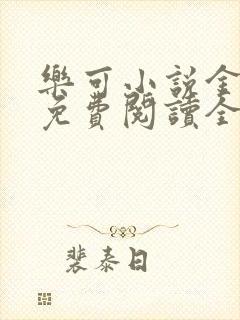 樂可小說全
免費閱讀全
裴泰日